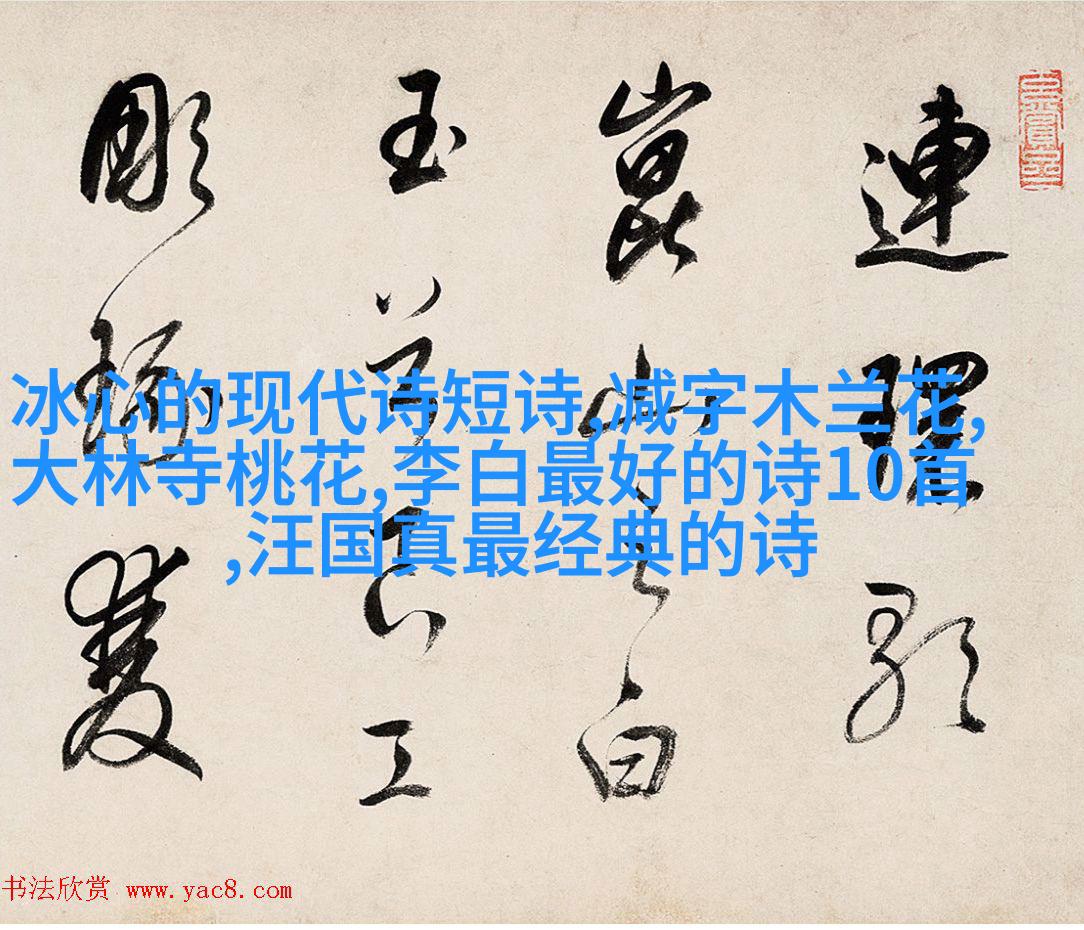 連環歌
崑山之白
玉兮良工
彫琢雙
冰心的现代诗短诗,减字木兰花,
大林寺桃花,李白最好的诗10首
,汪国真最经典的诗
书法欣赏 www.yac8.com